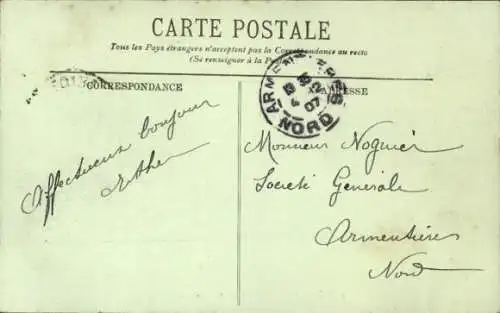 CARTE POSTALE
Tous les Pays étrangers n'acceptent pas la Correspondance au recto
(Se renseigner à la
CORRESPONDANCE
ADRESSE
ARMENTIÈRES
07
NORD
Affectueux bonjour
Monsieur Noguier
Société Générale
Armentières
Nord